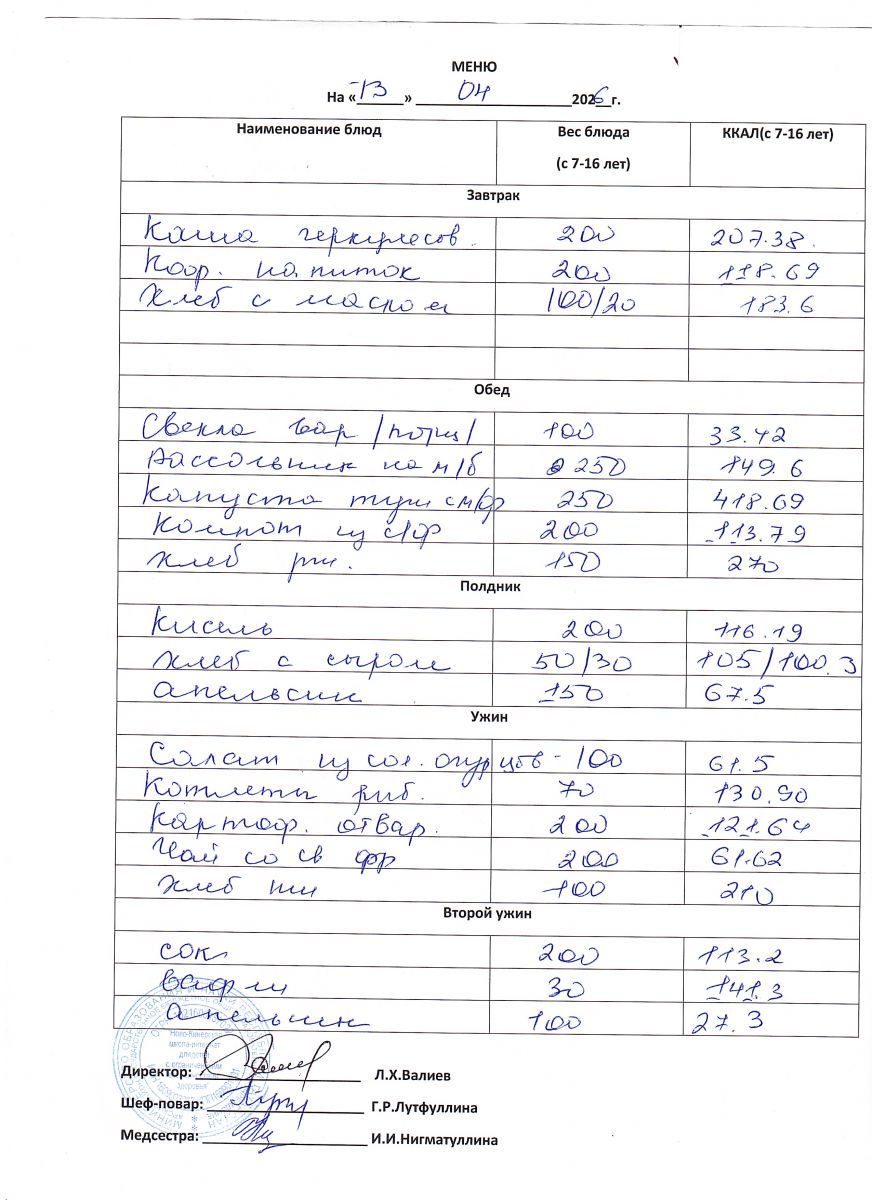 МЕНЮ
На «13» 04 2026 г.
Наименование блюд Вес блюда (с 7-16 лет) ККАЛ(с 7-16 лет)
Завтрак
Каша геркулесов. 200 207.38.
Коф. напиток 200 118.69
Хлеб с маслом 100/20 183.6
Обед
Свекла вар /порц/ 100 33.42
Рассольник на м/б 250 149.6
Капуста туш с м/ф 250 418.69
Компот из с/ф 200 113.79
Хлеб рж. 150 270
Полдник
Кисель 200 116.19
Хлеб с сыром 50/30 105/100.3
апельсин 150 67.5
Ужин
Салат из сол. огурцов - 100 61.5
Котлеты рыб. 70 130.90
Картоф. отвар. 200 121.64
Чай со св фр 200 61.62
Хлеб 100 210
Второй ужин
сок 200 113.2
вафли 30 141.3
апельсин 100 27.3
Директор: Л.Х.Валиев
Шеф-повар: Г.Р.Лутфуллина
Медсестра: И.И.Нигматуллина